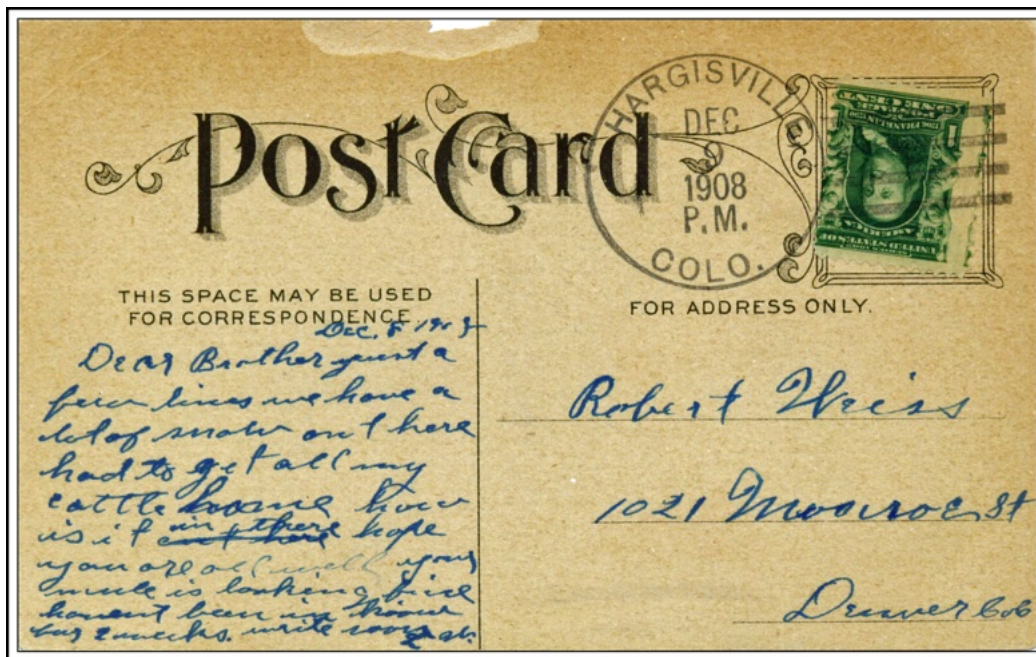 Post Card
HARGISVILLE
DEC
9
1908
P.M.
COLO.
POSTAGE
ONE CENT
UNITED STATES OF
AMERICA
THIS SPACE MAY BE USED
FOR CORRESPONDENCE
FOR ADDRESS ONLY.
Dec. 8 190
Dear Brother just a
few lines we have a
lot of snow out here
had to get all my
cattle home how
is it in there hope
you are all well your
mule is looking fine
havent been in
for 2 weeks. write soon
Robert Weiss
1021 Monroe St
Denver Colo